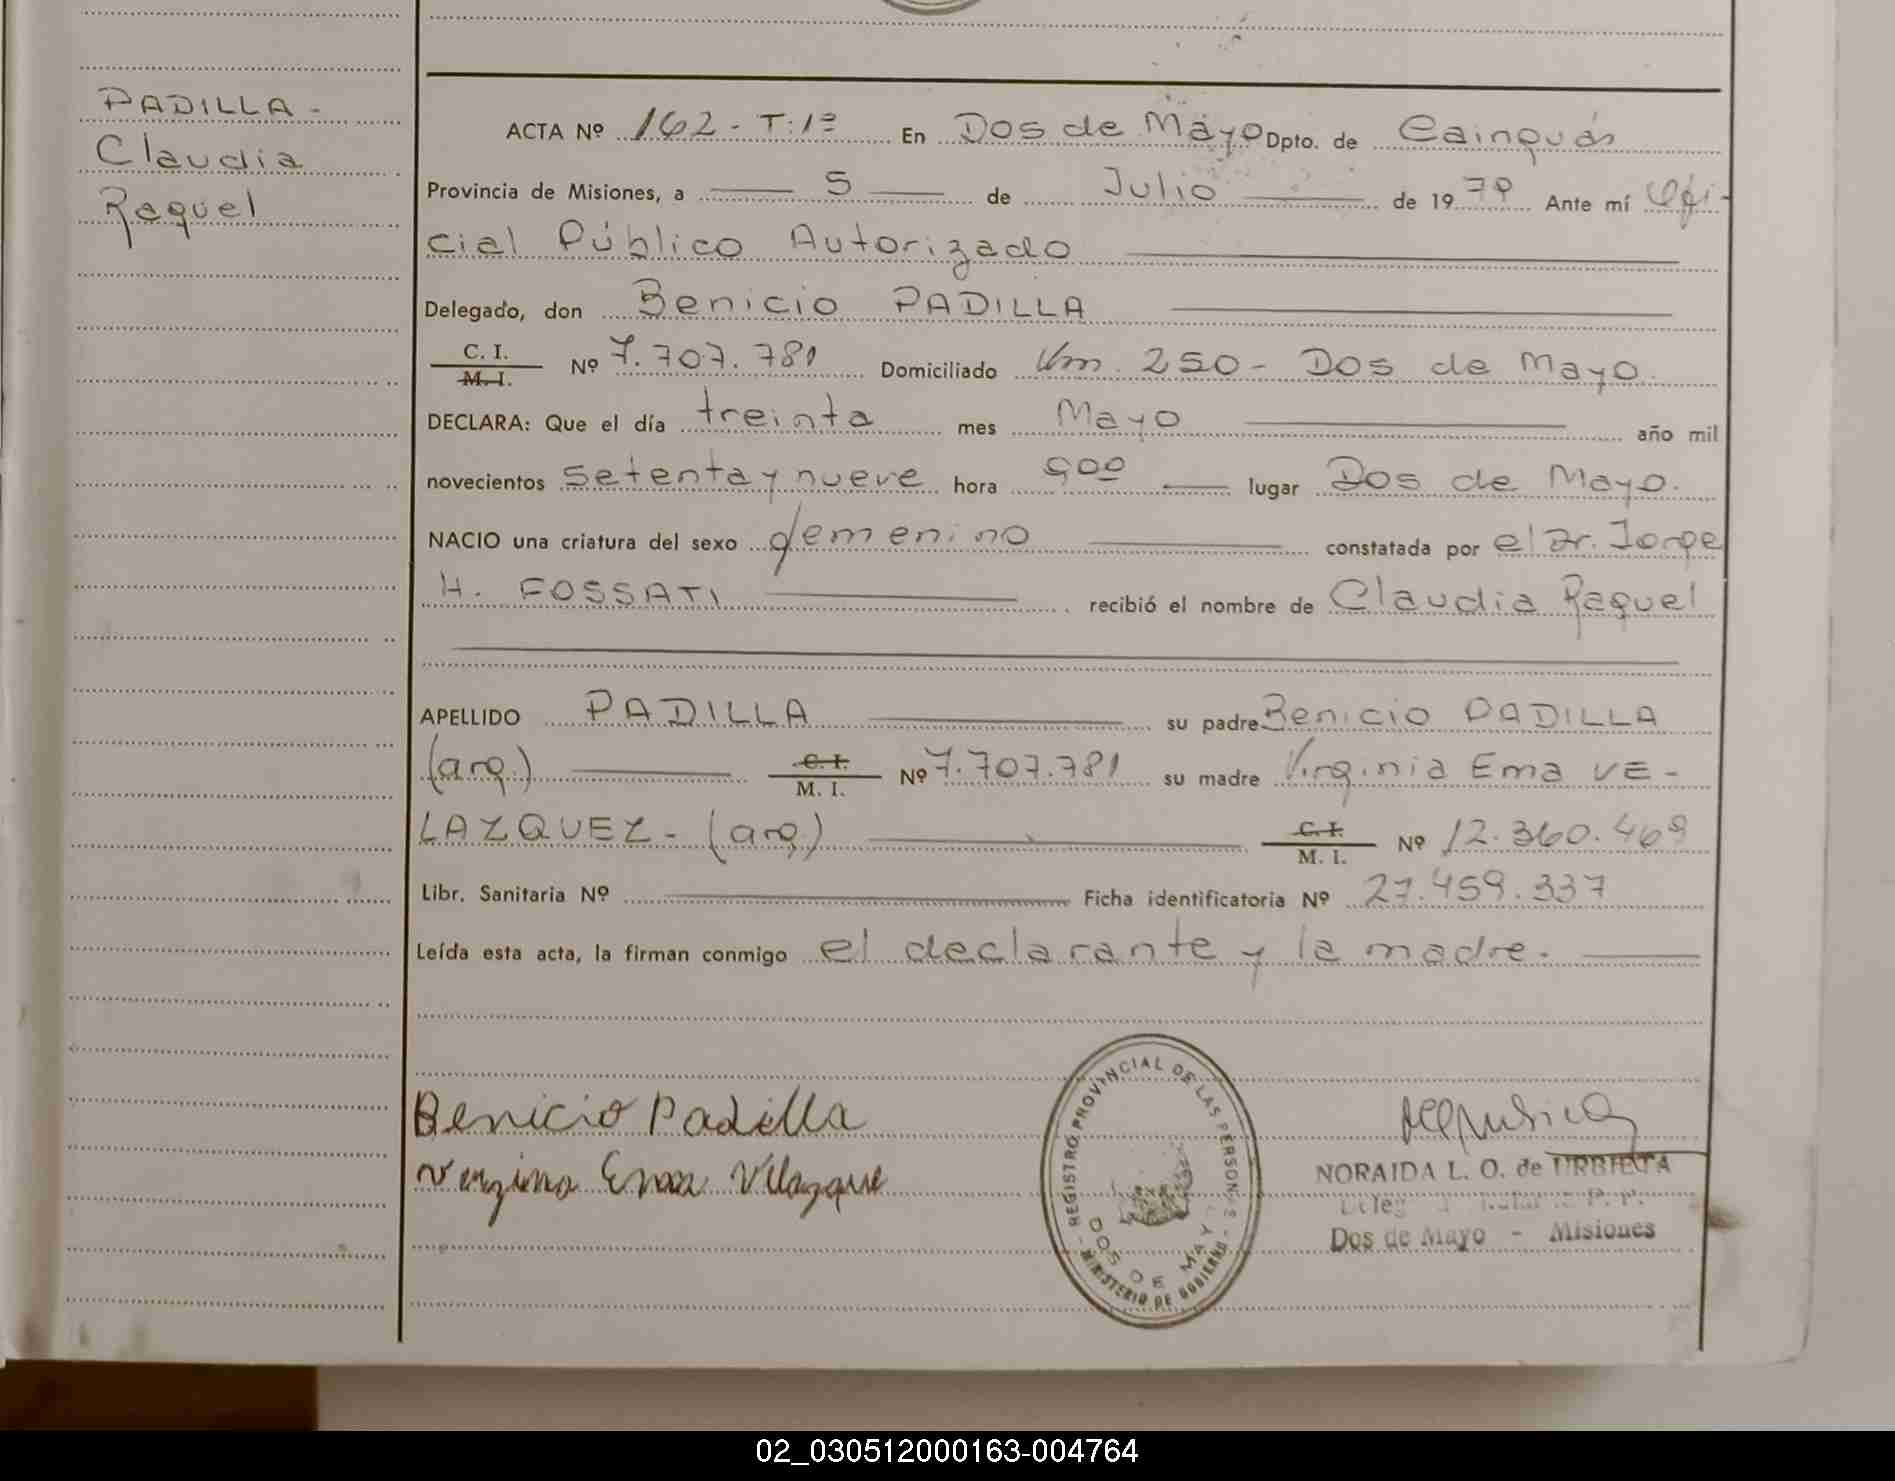 PADILLA-
Claudia
Raquel
ACTA Nº 162-T:1º En Dos de Mayo Dpto. de Cainguás
Provincia de Misiones, a 5 de Julio de 1979 Ante mí Ofi-
cial Público Autorizado
Delegado, don Benicio PADILLA
C. I.
M. I. Nº 7.707.781 Domiciliado Km. 250- Dos de Mayo.
DECLARA: Que el día treinta mes Mayo año mil
novecientos setenta y nueve hora 900 lugar Dos de Mayo.
NACIO una criatura del sexo femenino constatada por el Dr. Jorge
H. FOSSATI recibió el nombre de Claudia Raquel
APELLIDO PADILLA su padre Benicio PADILLA
(arg.) C. I. M. I. Nº 7.707.781 su madre Virginia Ema VE-
LAZQUEZ-(arg.) C. I. M. I. Nº 12.360.469
Libr. Sanitaria Nº Ficha identificatoria Nº 27.459.337
Leída esta acta, la firman conmigo el declarante y la madre.
Benicio Padilla
Ema
REGISTRO PROVINCIAL DE LAS PERSONAS
DOS DE MAYO
MINISTERIO DE GOBIERNO
NORAIDA L. O. de URBIETA
Dos de Mayo - Misiones
02_030512000163-004764